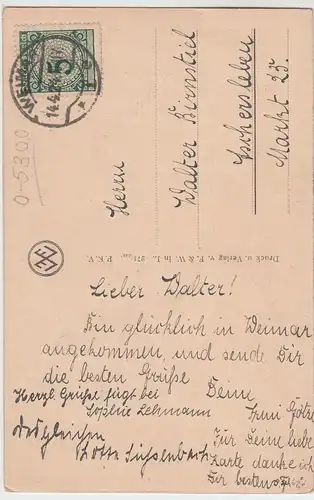 WEIMAR
14.4.24
5
0-5300
Herrn
Walter Birnstiel
Oschersleben
Markt 25.
Druck u. Verlag v. F. & W. in L. P.K.V.
Lieber Walter!
Bin glücklich in Weimar
angekommen, und sende Dir
die besten Grüße
Deine
Herzl. Grüße fügt bei
Sophie Lehmann
desgleichen
Für Deine liebe
Karte danke ich
Dir bestens.